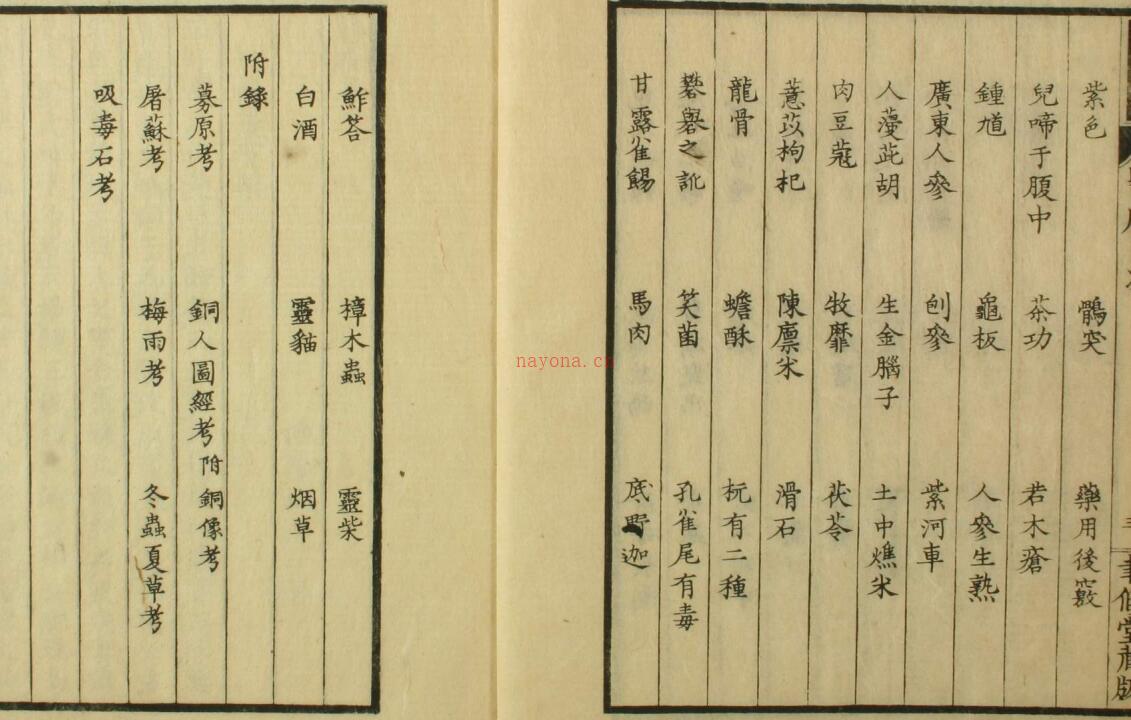 紫色　鶻突　藥用後竅
兒啼于腹中　茶功　若木瘡
鍾馗　龜板　人參生熟
廣東人參　刨參　紫河車
人薓茈胡　生金腦子　土中燋米
肉豆蔻　牧靡　茯苓
薏苡枸杞　陳廩米　滑石
龍骨　蟾酥　杬有二種
礬礜之訛　笑菌　孔雀尾有毒
甘露雀餳　馬肉　底野迦
鮓荅　樟木蟲　靈柴
白酒　靈貓　烟草
附錄
募原考　銅人圖經考附銅像考
屠蘇考　梅雨考　冬蟲夏草考
吸毒石考
nayona.cn